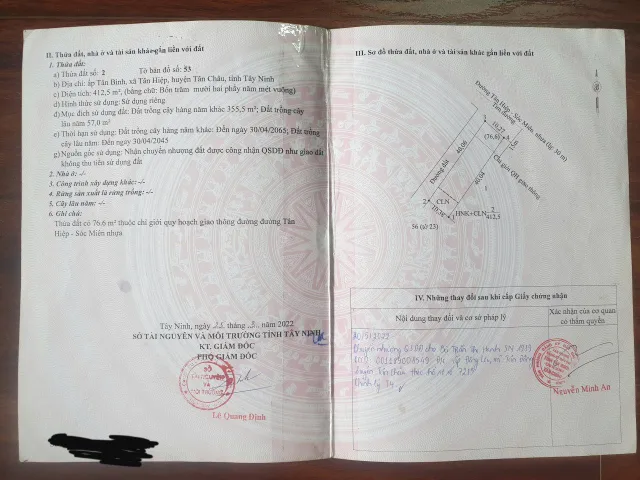 II. Thửa đất, nhà ở và tài sản khác gắn liền với đất
1. Thửa đất:
a) Thửa đất số: 2 Tờ bản đồ số: 53
b) Địa chỉ: ấp Tân Bình, xã Tân Hiệp, huyện Tân Châu, tỉnh Tây Ninh
c) Diện tích: 412,5 m², (bằng chữ: Bốn trăm mười hai phẩy năm mét vuông)
d) Hình thức sử dụng: Sử dụng riêng
đ) Mục đích sử dụng đất: Đất trồng cây hàng năm khác 355,5 m²; Đất trồng cây
lâu năm 57,0 m²
e) Thời hạn sử dụng: Đất trồng cây hàng năm khác: Đến ngày 30/04/2065; Đất trồng
cây lâu năm: Đến ngày 30/04/2045
g) Nguồn gốc sử dụng: Nhận chuyển nhượng đất được công nhận QSDĐ như giao đất
không thu tiền sử dụng đất
2. Nhà ở: -/-
3. Công trình xây dựng khác: -/-
4. Rừng sản xuất là rừng trồng: -/-
5. Cây lâu năm: -/-
6. Ghi chú:
Thửa đất có 76.6 m² thuộc chỉ giới quy hoạch giao thông đường đường Tân
Hiệp - Sóc Miên nhựa.
Tây Ninh, ngày tháng năm 2022
SỞ TÀI NGUYÊN VÀ MÔI TRƯỜNG TỈNH TÂY NINH
KT. GIÁM ĐỐC
PHÓ GIÁM ĐỐC
SỞ
TÀI NGUYÊN
VÀ
MÔI TRƯỜNG
Lê Quang Định
III. Sơ đồ thửa đất, nhà ở và tài sản khác gắn liền với đất
Đường Tân Hiệp - Sóc Miên nhựa (lg 30 m)
10,27
(76,6)
Đường đất
40,06
40,04
Chỉ giới QH giao thông
2
CLN
10,38
HNK+CLN 2
412,5
56 (tờ 23)
IV. Những thay đổi sau khi cấp Giấy chứng nhận
Nội dung thay đổi và cơ sở pháp lý
Xác nhận của cơ quan
có thẩm quyền
Nguyễn Minh An